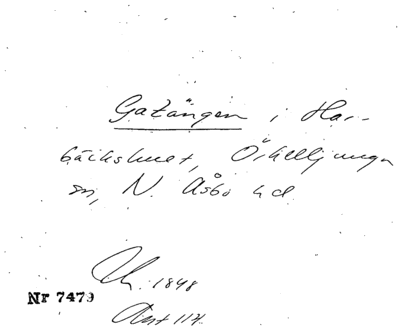 Gatängen i Har-
bäckshult, Örkelljunga
sn, N. Åsbo hd
1848
Nr 7479
Akt 114